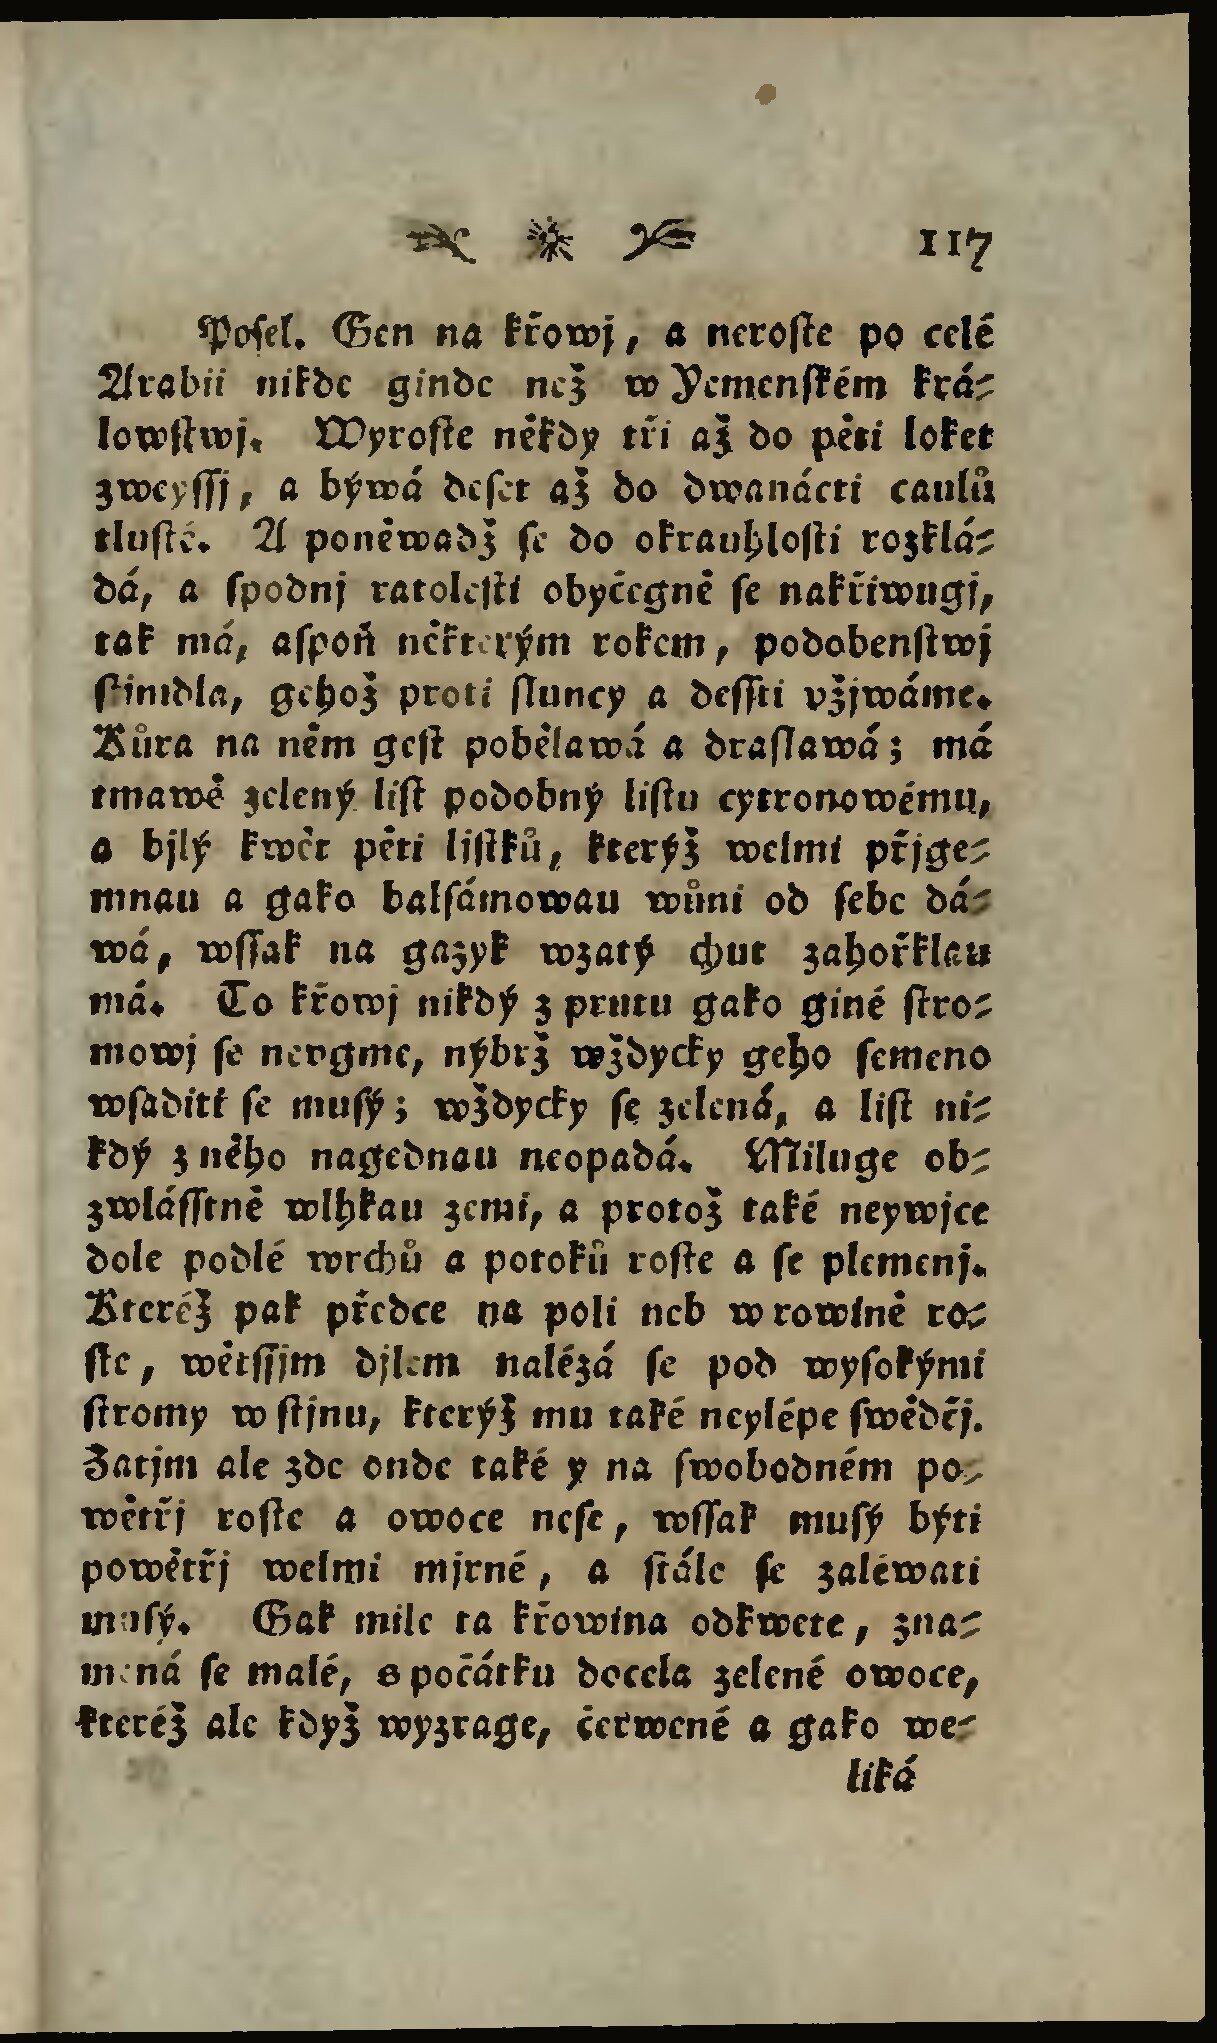 117
Poſel. Gen na křowj, a neroſte po celé
Arabii nikde ginde než w Yemenſkém krá⸗
lowſtwj. Wyroſte někdy tři až do pěti loket
zweyſſj, a býwá deſet až do dwanácti caulů
tluſté. A poněwadž ſe do okrauhloſti rozklá⸗
dá, a ſpodnj ratoleſti obyčegně ſe nakřiwugj,
tak má, aſpoň některým rokem, podobenſtwj
ſtinidla, gehož proti ſluncy a deſſti vžjwáme.
Kůra na něm geſt pobělawá a draſlawá; má
tmawě zelený liſt podobný liſtu cytronowému,
a bjlý kwět pěti ljſtků, kterýž welmi přjge⸗
mnau a gako balſámowau wůni od ſebe dá⸗
wá, wſſak na gazyk wzatý chut zahořklau
má. To křowj nikdý z prutu gako giné ſtro⸗
mowj ſe nevgme, nýbrž wždycky geho ſemeno
wſaditi ſe muſý; wždycky ſe zelená, a liſt ni⸗
kdý z něho nagednau neopadá. Miluge ob⸗
zwláſſtně wlhkau zemi, a protož také neywjce
dole podlé wrchů a potoků roſte a ſe plemenj.
Kteréž pak předce na poli neb w rowině ro⸗
ſte, wětſſjm djlem nalézá ſe pod wyſokými
ſtromy w ſtjnu, kterýž mu také neylépe ſwědčj.
Zatjm ale zde onde také y na ſwobodném po⸗
wětřj roſte a owoce neſe, wſſak muſý býti
powětřj welmi mjrné, a ſtále ſe zaléwati
muſý. Gak mile ta křowina odkwete, zna⸗
mená ſe malé, s počátku docela zelené owoce,
kteréž ale když wyzrage, čerwené a gako we⸗
liká